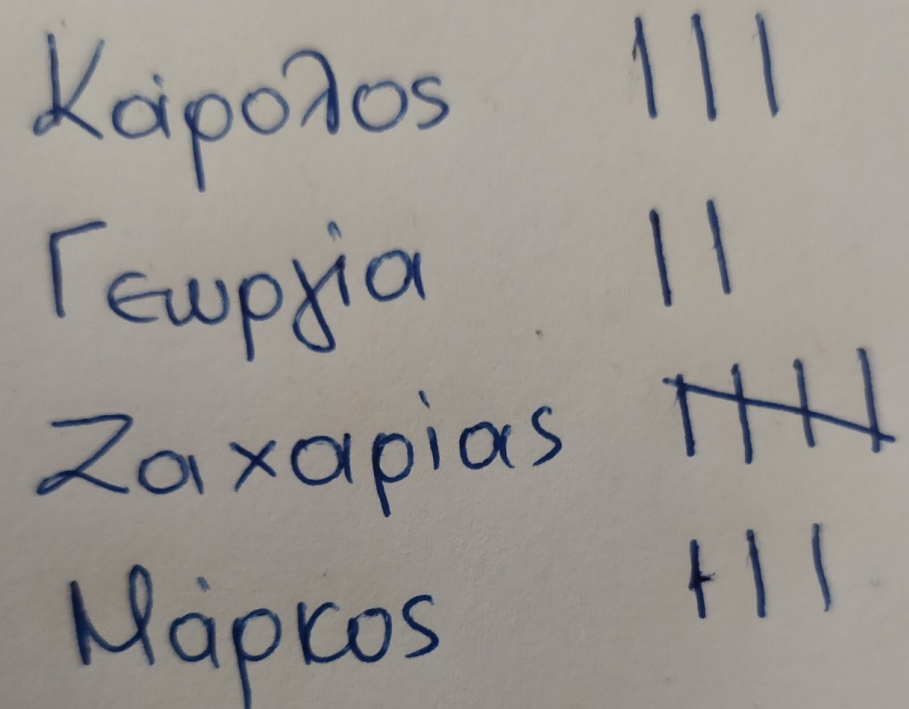 Κάρολος |||
Γεωργία ||
Ζαχαρίας 卌
Μάρκος |||